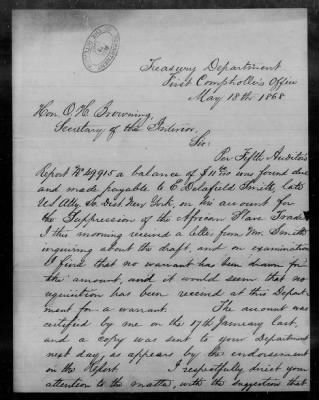 Treasury Department
First Comptroller's Office
May 18th 1868
Hon. O. H. Browning,
Secretary of the Interior.
Sir:
Per Fifth Auditor's
Report No 49,915 a balance of was found due
and made payable to E. Delafield Smith, late
U.S. Atty So. Dist. New York, on his account for
the Suppression of the African Slave Trade.
I this morning received a letter from Mr. Smith
inquiring about the draft, and on examination
I find that no warrant has been drawn for
the amount, and it would seem that no
requisition has been received at this Depart
ment for a warrant. The account was
certified by me on the 17th January last,
and a copy was sent to your Department
next day, as appears by the endorsement
on the Report. I respectfully direct your
attention to the matter, with the suggestion that